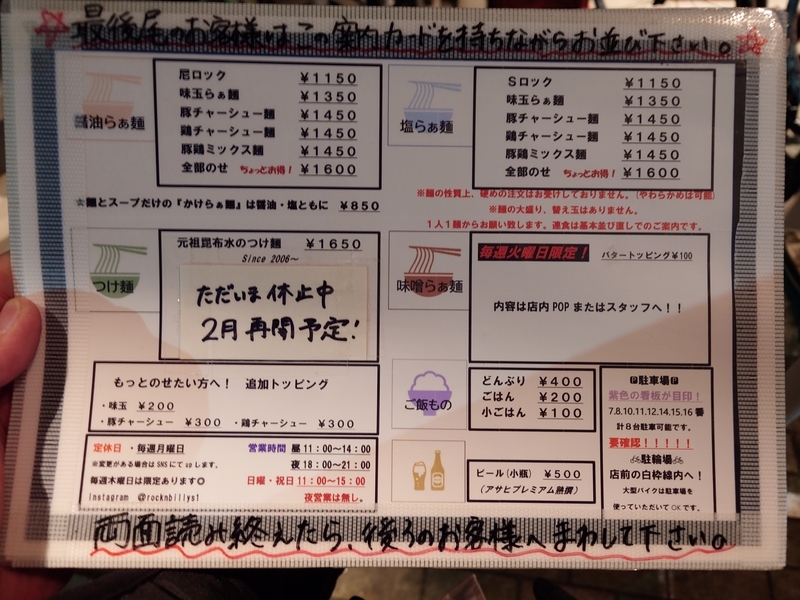 最後尾のお客様はこの案内カードを持ちながらお並び下さい。
醤油らぁ麺
尼ロック ¥1150
味玉らぁ麺 ¥1350
豚チャーシュー麺 ¥1450
鶏チャーシュー麺 ¥1450
豚鶏ミックス麺 ¥1450
全部のせ ちょっとお得! ¥1600
塩らぁ麺
Sロック ¥1150
味玉らぁ麺 ¥1350
豚チャーシュー麺 ¥1450
鶏チャーシュー麺 ¥1450
豚鶏ミックス麺 ¥1450
全部のせ ちょっとお得! ¥1600
☆麺とスープだけの『かけらぁ麺』は醤油・塩ともに ¥850
※麺の性質上、硬めの注文はお受けしておりません。(やわらかめは可能)
※麺の大盛り、替え玉はありません。
1人1麺からお願い致します。連食は基本並び直しでのご案内です。
つけ麺
元祖昆布水のつけ麺 ¥1650
Since 2006~
ただいま休止中
2月再開予定!
味噌らぁ麺
毎週火曜日限定! バタートッピング¥100
内容は店内POPまたはスタッフへ!!
もっとのせたい方へ! 追加トッピング
・味玉 ¥200
・豚チャーシュー ¥300 ・鶏チャーシュー ¥300
ご飯もの
どんぶり ¥400
ごはん ¥200
小ごはん ¥100
ビール(小瓶) ¥500
(アサヒプレミアム熟撰)
🅿駐車場🅿
紫色の看板が目印!
7.8.10.11.12.14.15.16番
計8台駐車可能です。
要確認!!!!!
駐輪場
店前の白枠線内へ!
大型バイクは駐車場を
使っていただいてOKです。
定休日 ・毎週月曜日
※変更がある場合はSNSにてupします。
毎週木曜日は限定あります◎
instagram @rocknbillys1
営業時間 昼11:00~14:00
夜18:00~21:00
日曜・祝日11:00~15:00
夜営業は無し。
両面読み終えたら、後ろのお客様へまわして下さい。